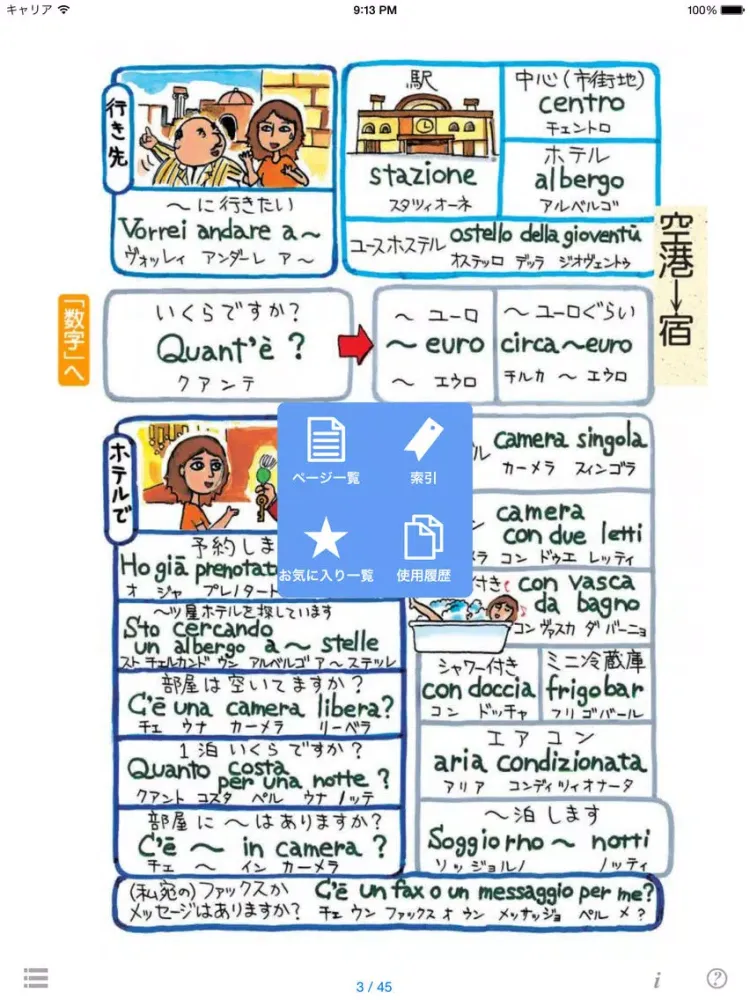 キャリア
9:13 PM
100%
行き先
～に行きたい
Vorrei andare a～
ヴォッレイ アンダーレ ア～
駅
stazione
スタツィオーネ
中心(市街地)
centro
チェントロ
ホテル
albergo
アルベルゴ
ユースホステル
ostello della gioventù
オステッロ デッラ ジオヴェントゥ
空港→宿
「数字」へ
いくらですか?
Quant'è ?
クアンテ
～ ユーロ
～ euro
～ エウロ
～ユーロぐらい
circa～euro
チルカ ～ エウロ
ホテルで
予約しま
Ho già prenotat
オ ジャ プレノタート
～ツ星ホテルを探しています
Sto cercando
un albergo a～ stelle
スト チェルカンド ウン アルベルゴ ア～ ステッレ
部屋は空いてますか?
C'è una camera libera?
チェ ウナ カーメラ リーベラ
1泊いくらですか?
Quanto costa
per una notte ?
クアント コスタ ペル ウナ ノッテ
部屋に～はありますか?
C'è ～ in camera ?
チェ ～ イン カーメラ
ページ一覧
索引
お気に入り一覧
使用履歴
ル
camera singola
カーメラ スィンゴラ
camera
con due letti
ラ コン ドゥエ レッティ
付き
con vasca
da bagno
コン ヴァスカ ダ バーニョ
シャワー付き
con doccia
コン ドッチャ
ミニ冷蔵庫
frigobar
フリゴバール
エアコン
aria condizionata
アリア コンディツィオナータ
～泊します
Soggiorno ～ notti
ソッジョルノ ノッティ
(私宛の)ファックスか
メッセージはありますか?
C'è un fax o un messaggio per me?
チェ ウン ファックス オ ウン メッサッジョ ペル メ?
3 / 45